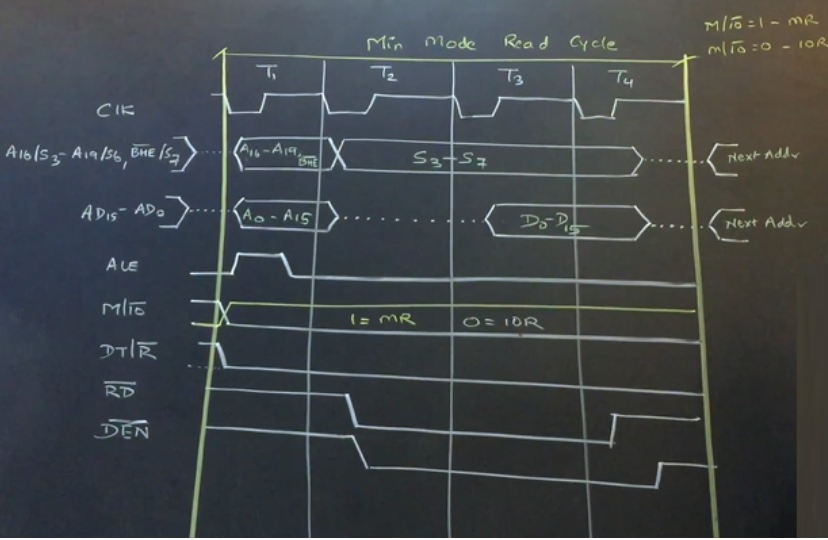 M/I̅O̅=1 - MR
M/I̅O̅=0 - IOR
Min Mode Read Cycle
T₁ T₂ T₃ T₄
CLK
A16/S3-A19/S6, B̅H̅E̅/S7 A16-A19, B̅H̅E̅ S3-S7 Next Addr
AD15-AD0 A0-A15 D0-D15 Next Addr
ALE
M/I̅O̅ 1=MR 0=IOR
DT/R̅
R̅D̅
D̅E̅N̅